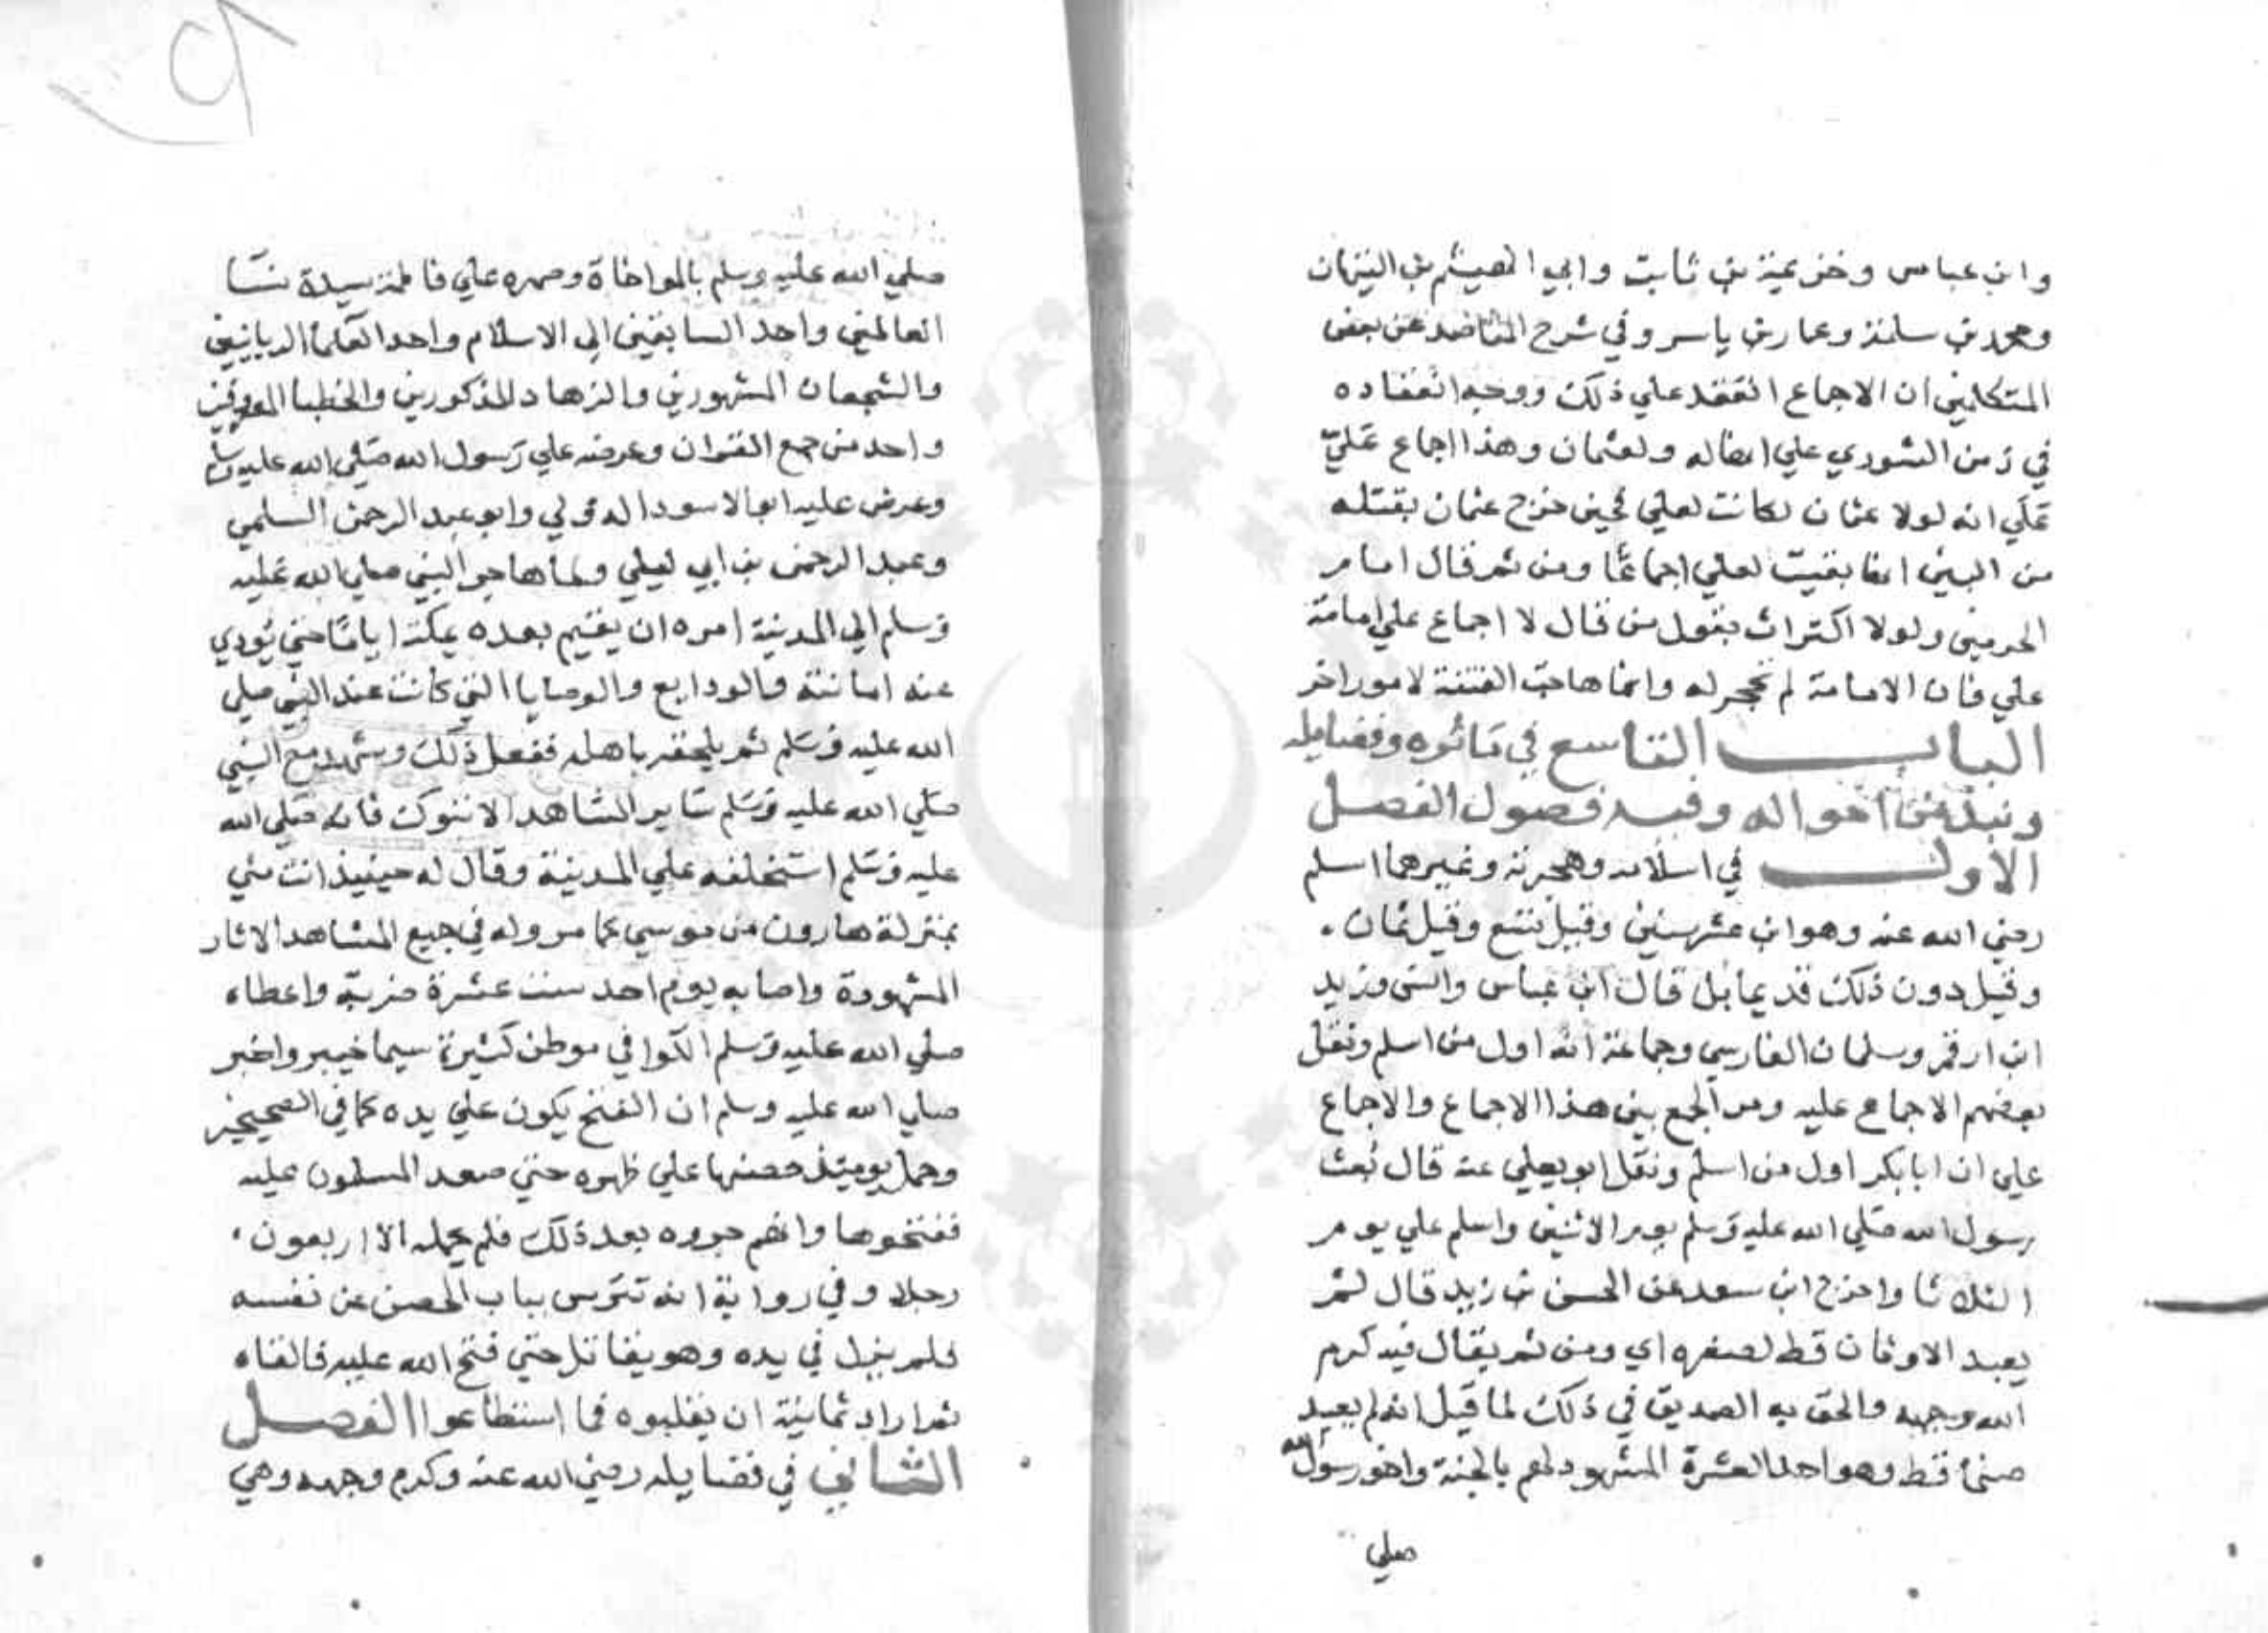 وابن عباس وخزيمة بن ثابت وابي الهيثم بن التيهان
ومحمد بن سلمة وعمار بن ياسر وفي شرح المقاصد عن بعض
المتكلمين ان الاجماع انعقد علي ذلك ووجه انعقاده
في زمن الشوري علي انها له ولعثمان وهذا اجماع عَليّ
عَلي انه لولا عثمان لكانت لعلي فحين خرج عثمان بقتله
من البين انها بقيت لعلي اجماعًا ومن ثم قال امام
الحرمين ولولا اكتراث بقول من قال لا اجماع علي امامة
علي فان الامامة لم تجحد له وانما هاجت الفتنة لامور اخر
الباب التاسع في مآثره وفضايله
ونبذ من احواله وفيه فصول الفصل
الاول في اسلامه وهجرته وغيرهما اسلم
رضي الله عنه وهو ابن عشر سنين وقيل تسع وقيل ثمان
وقيل دون ذلك قديما بل قال ابن عباس وانس وزيد
ابن ارقم وسلمان الفارسي وجماعة انه اول من اسلم ونقل
بعضهم الاجماع عليه ومر الجمع بين هذا الاجماع والاجماع
علي ان ابا بكر اول من اسلم ونقل ابو يعلي عنه قال بُعث
رسول الله صَلي الله عليه وَسلم يوم الاثنين واسلم علي يوم
الثلاثا واخرج ابن سعد عن الحسن بن زيد قال لم
يعبد الاوثان قط لصغره اي ومن ثم يقال فيه كرم
الله وجهه والحق به الصديق في ذلك لما قيل انه لم يعبد
صنما قط وهو احد العشرة المشهود لهم بالجنة واخو رسول الله
صلي
صلي الله عليه وسلم بالمواخاة وصهره علي فاطمة سيدة نسَا
العالمين واحد السابقين الي الاسلام واحد العلما الربانيين
والشجعان المشهورين والزهاد المذكورين والخطبا المعروفين
واحد من جمع القران وعرضه علي رَسول الله صَلي الله عليه وسلم
وعرض عليه ابو الاسود الدولي وابو عبد الرحمن السلمي
وعبد الرحمن بن ابي ليلي ولما هاجر النبي صلي الله عَليه
وَسلم الي المدينة امره ان يقيم بعده بمكة ايامًا حتي يُودي
عنه امانته والودايع والوصايا التي كانت عند النبي صلي
الله عليه وَسَلم ثم يلحقه باهله ففعل ذلك وشهد مع النبي
صَلي الله عليه وَسَلم سَاير المشاهد الا تبوك فانه صَلي الله
عليه وَسَلم استخلفه علي المدينة وقال له حينيذ انت مني
بمنزلة هارون من موسي كما مر وله في جميع المشاهد الاثار
المشهودة واصابه يوم احد ست عشرة ضربة واعطاه
صلي الله عليه وَسلم اللوا في موطن كثيرة سيما خيبر واخبر
صلي الله عليه وسلم ان الفتح يكون علي يده كما في الصحيحين
وحمل يوميذ حصنها علي ظهره حتي صعد المسلمون عليه
ففتحوها وانهم جروه بعد ذلك فلم يحمله الا اربعون
رجلا وفي رواية انه تترس بباب الحصن عن نفسه
فلم يزل في يده وهو يقاتل حتي فتح الله عليه فالقاه
ثم اراد ثمانية ان يقلبوه فما استطاعوا الفصل
الثاني في فضايله رضي الله عنه وكرم وجهه وهي